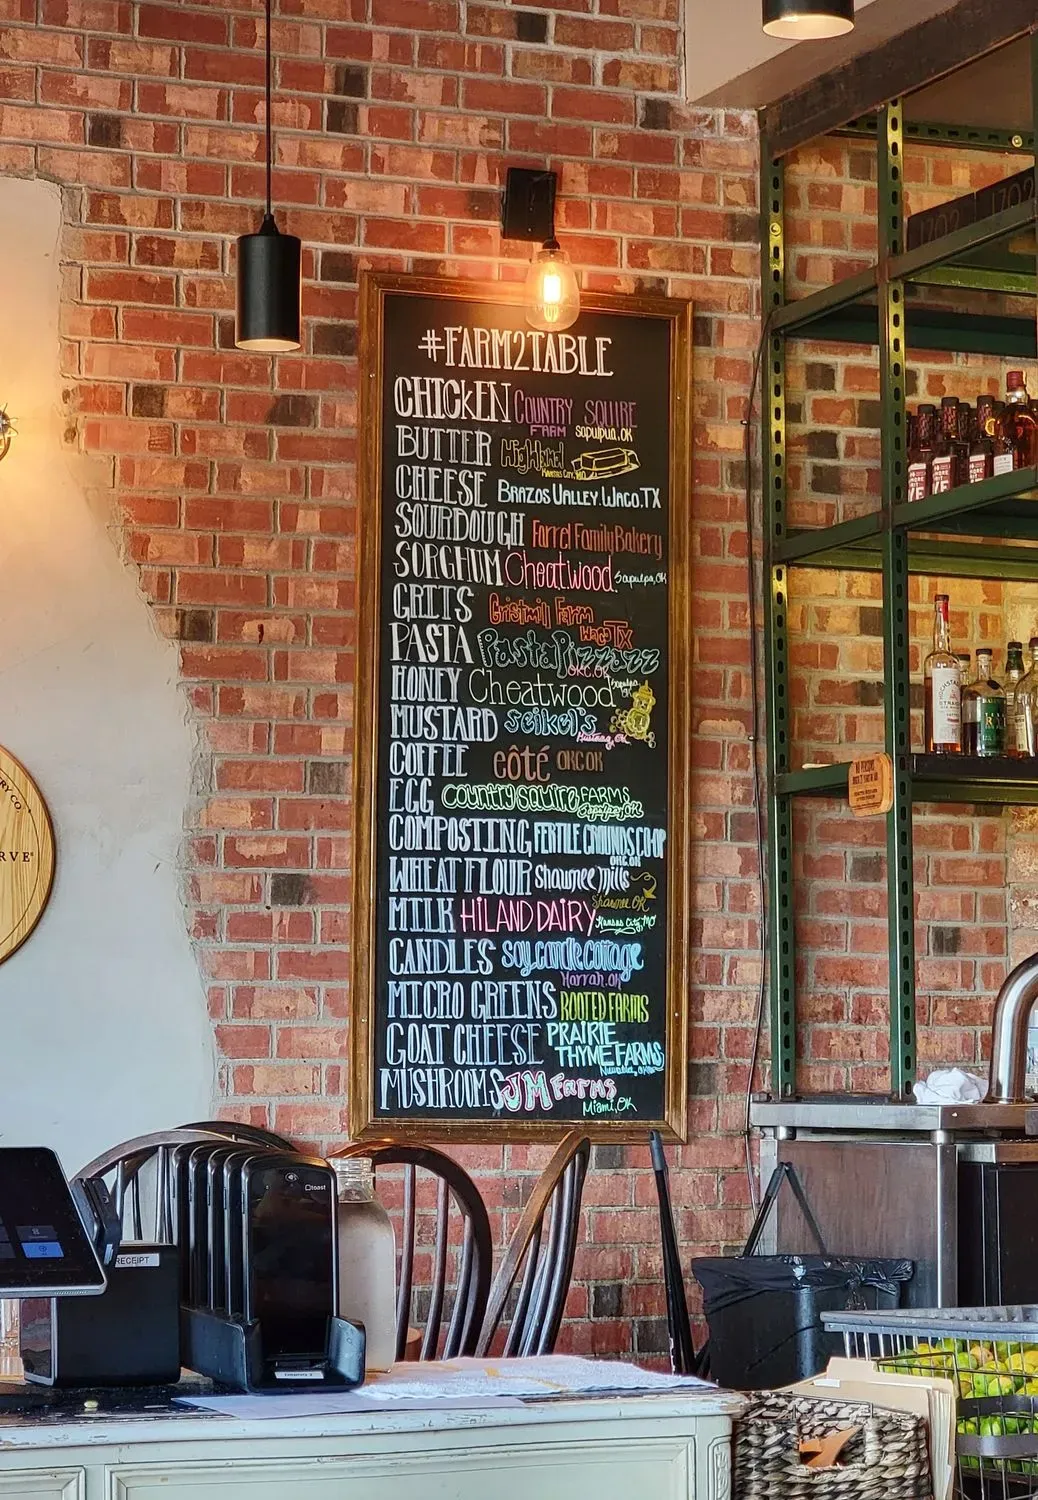 #FARM2TABLE
CHICKEN COUNTRY SQUIRE
FARM Sapulpa, OK
BUTTER Highland
Kansas City, MO
CHEESE BRAZOS VALLEY. WACO, TX
SOURDOUGH Farrel Family Bakery
SORGHUM Cheatwood. Sapulpa, OK
GRITS Gristmill Farm
Waco TX
PASTA Pasta Pizzazz
OKC. OK
HONEY Cheatwood Sapulpa
OK
MUSTARD Seikel's
Mustang, OK
COFFEE eôté OKC OK
EGG Country Squire FARMS
Sapulpa, OK
COMPOSTING FERTILE GROUNDS CO-OP
OKC OK
WHEAT FLOUR Shawnee Mills
Shawnee OK
MILK HILAND DAIRY Kansas City, MO
CANDLES Soy candle cottage
Harrah, OK
MICRO GREENS ROOTED FARMS
GOAT CHEESE PRAIRIE
THYME FARMS
MUSHROOMS JM Farms
Miami, OK
1702 1702
RVE
RECEIPT
toast